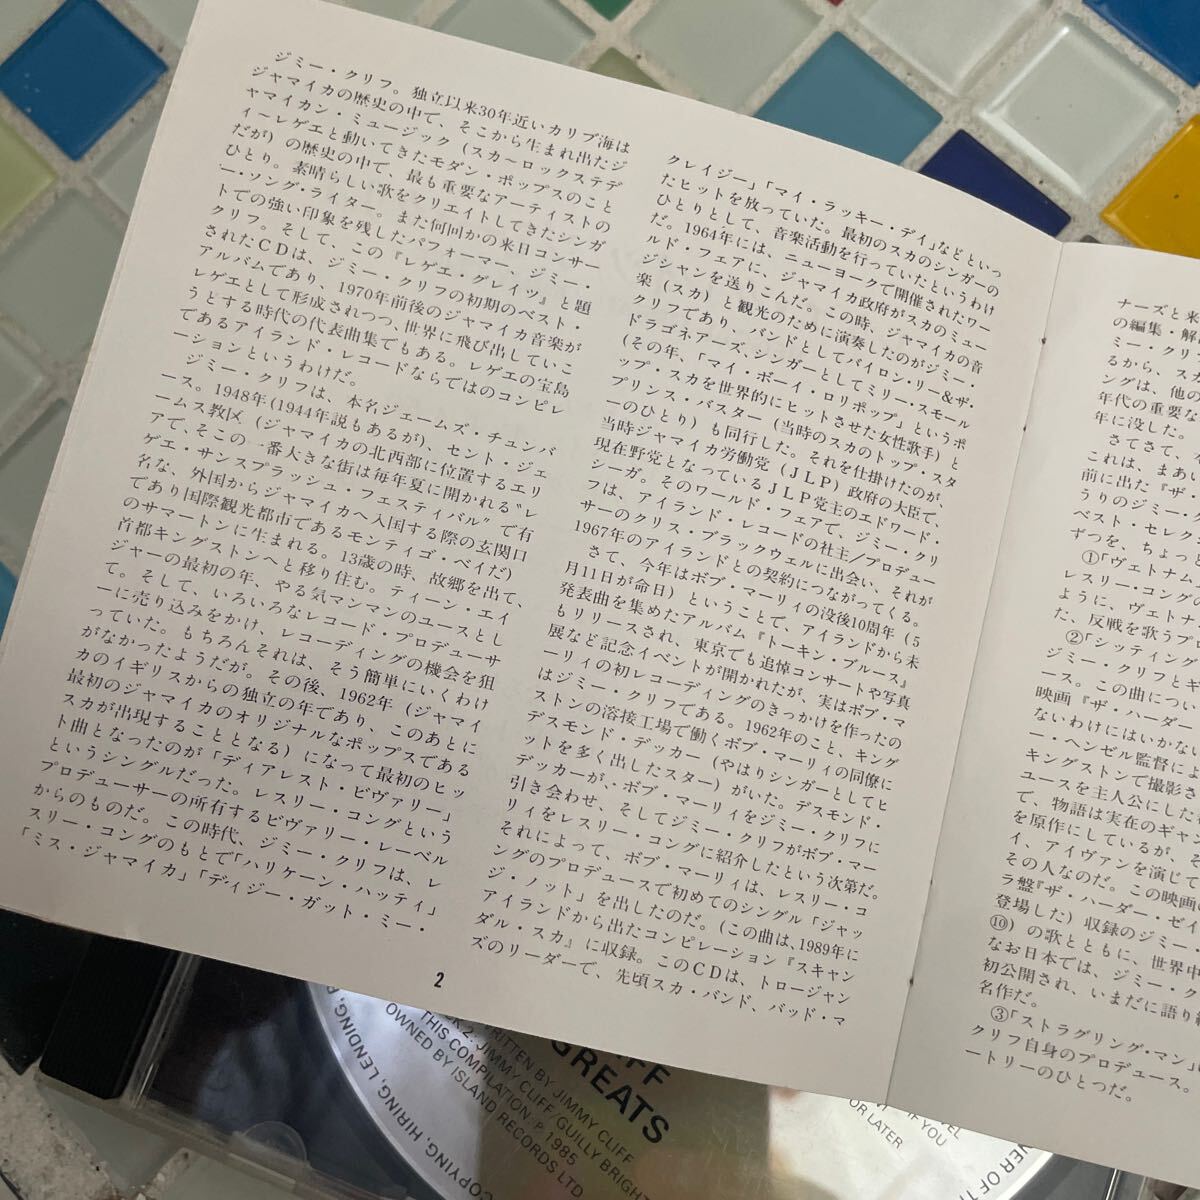 ジミー・クリフ。独立以来30年近いカリブ海は
ジャマイカの歴史の中で、そこから生まれ出たジ
ャマイカン・ミュージック（スカ～ロックステデ
ィ～レゲエと動いてきたモダン・ポップスのこと
だが）の歴史の中で、最も重要なアーティストの
ひとり。素晴らしい歌をクリエイトしてきたシンガ
ー・ソング・ライター。また何回かの来日コンサー
トでの強い印象を残したパフォーマー、ジミー・
クリフ。そして、この『レゲエ・グレイツ』と題
されたCDは、ジミー・クリフの初期のベスト・
アルバムであり、1970年前後のジャマイカ音楽が
レゲエとして形成されつつ、世界に飛び出していこ
うとする時代の代表曲集でもある。レゲエの宝島
であるアイランド・レコードならではのコンピレ
ーションというわけだ。
ジミー・クリフは、本名ジェームズ・チュンバ
ース。1948年(1944年説もあるが)、セント・ジェ
ームス教区（ジャマイカの北西部に位置するエリ
アで、そこの一番大きな街は毎年夏に開かれる"レ
ゲエ・サンスプラッシュ・フェスティバル"で有
名な、外国からジャマイカへ入国する際の玄関口
であり国際観光都市であるモンティゴ・ベイだ）
のサマートンに生まれる。13歳の時、故郷を出て、
首都キングストンへと移り住む。ティーン・エイ
ジャーの最初の年、やる気マンマンのユースとし
て。そして、いろいろなレコード・プロデューサ
ーに売り込みをかけ、レコーディングの機会を狙
っていた。もちろんそれは、そう簡単にいくわけ
がなかったようだが。その後、1962年（ジャマイ
カのイギリスからの独立の年であり、このあとに
最初のジャマイカのオリジナルなポップスである
スカが出現することとなる）になって最初のヒッ
ト曲となったのが「ディアレスト・ビヴァリー」
というシングルだった。レスリー・コングという
プロデューサーの所有するビヴァリー・レーベル
からのものだ。この時代、ジミー・クリフは、レ
スリー・コングのもとで「ハリケーン・ハッティ」
「ミス・ジャマイカ」「デイジー・ガット・ミー・
クレイジー」「マイ・ラッキー・デイ」などといっ
たヒットを放っていた。最初のスカのシンガーの
ひとりとして、音楽活動を行っていたというわけ
だ。1964年には、ニューヨークで開催されたワー
ルド・フェアに、ジャマイカ政府がスカのミュー
ジシャンを送りこんだ。この時、ジャマイカの音
楽（スカ）と観光のために演奏したのがジミー・
クリフであり、バンドとしてバイロン・リー&ザ・
ドラゴネアーズ、シンガーとしてミリー・スモール
(その年、「マイ・ボーイ・ロリポップ」というポ
ップ・スカを世界的にヒットさせた女性歌手）と
プリンス・バスター（当時のスカのトップ・スタ
ーのひとり）も同行した。それを仕掛けたのが、
当時ジャマイカ労働党（JLP）政府の大臣で、
現在野党となっているJLP党主のエドワード・
シーガ。そのワールド・フェアで、ジミー・クリ
フは、アイランド・レコードの社主/プロデュー
サーのクリス・ブラックウェルに出会い、それが
1967年のアイランドとの契約につながってくる。
さて、今年はボブ・マーリィの没後10周年（5
月11日が命日）ということで、アイランドから未
発表曲を集めたアルバム『トーキン・ブルース』
もリリースされ、東京でも追悼コンサートや写真
展など記念イベントが開かれたが、実はボブ・マ
ーリィの初レコーディングのきっかけを作ったの
はジミー・クリフである。1962年のこと、キング
ストンの溶接工場で働くボブ・マーリィの同僚に
デスモンド・デッカー（やはりシンガーとしてヒ
ットを多く出したスター）がいた。デスモンド・
デッカーが、ボブ・マーリィをジミー・クリフに
引き会わせ、そしてジミー・クリフがボブ・マー
リィをレスリー・コングに紹介したという次第だ。
それによって、ボブ・マーリィは、レスリー・コ
ングのプロデュースで初めてのシングル「ジャッ
ジ・ノット」を出したのだ。(この曲は、1989年に
アイランドから出たコンピレーション『スキャン
ダル・スカ』に収録。このCDは、トロージャン
ズのリーダーで、先頃スカ・バンド、バッド・マ
2
ナーズと来
の編集・解
ミー・クリ
るから、スカ
ングは、他の
年代の重要な
年に没した。
さてさて、
これは、まあい
前に出た『ザ・
うりのジミー・
ベスト・セレク
ずつを、ちょっと
①「ヴェトナム
レスリー・コングの
ように、ヴェトナ
た、反戦を歌うプ
②「シッティング
ジミー・クリフとギ
ース。この曲につい
映画『ザ・ハーダー
ないわけにはいかな
ー・ヘンゼル監督によ
キングストンで撮影さ
ユースを主人公にした
で、物語は実在のギャン
を原作にしているが、そ
イ、アイヴァンを演じて
その人なのだ。この映画の
ラ盤『ザ・ハーダー・ゼイ
登場した）収録のジミー・
⑩）の歌とともに、世界中
なお日本では、ジミー・ク
初公開され、いまだに語り
名作だ。
③「ストラグリング・マン」
クリフ自身のプロデュース。
ートリーのひとつだ。
GREATS
WRITTEN BY JIMMY CLIFF
2. JIMMY CLIFF/GUILLY BRIGHT
THIS COMPILATION ℗ 1985
OWNED BY ISLAND RECORDS LTD
IF YOU
OR LATER
COPYING, HIRING, LENDING,